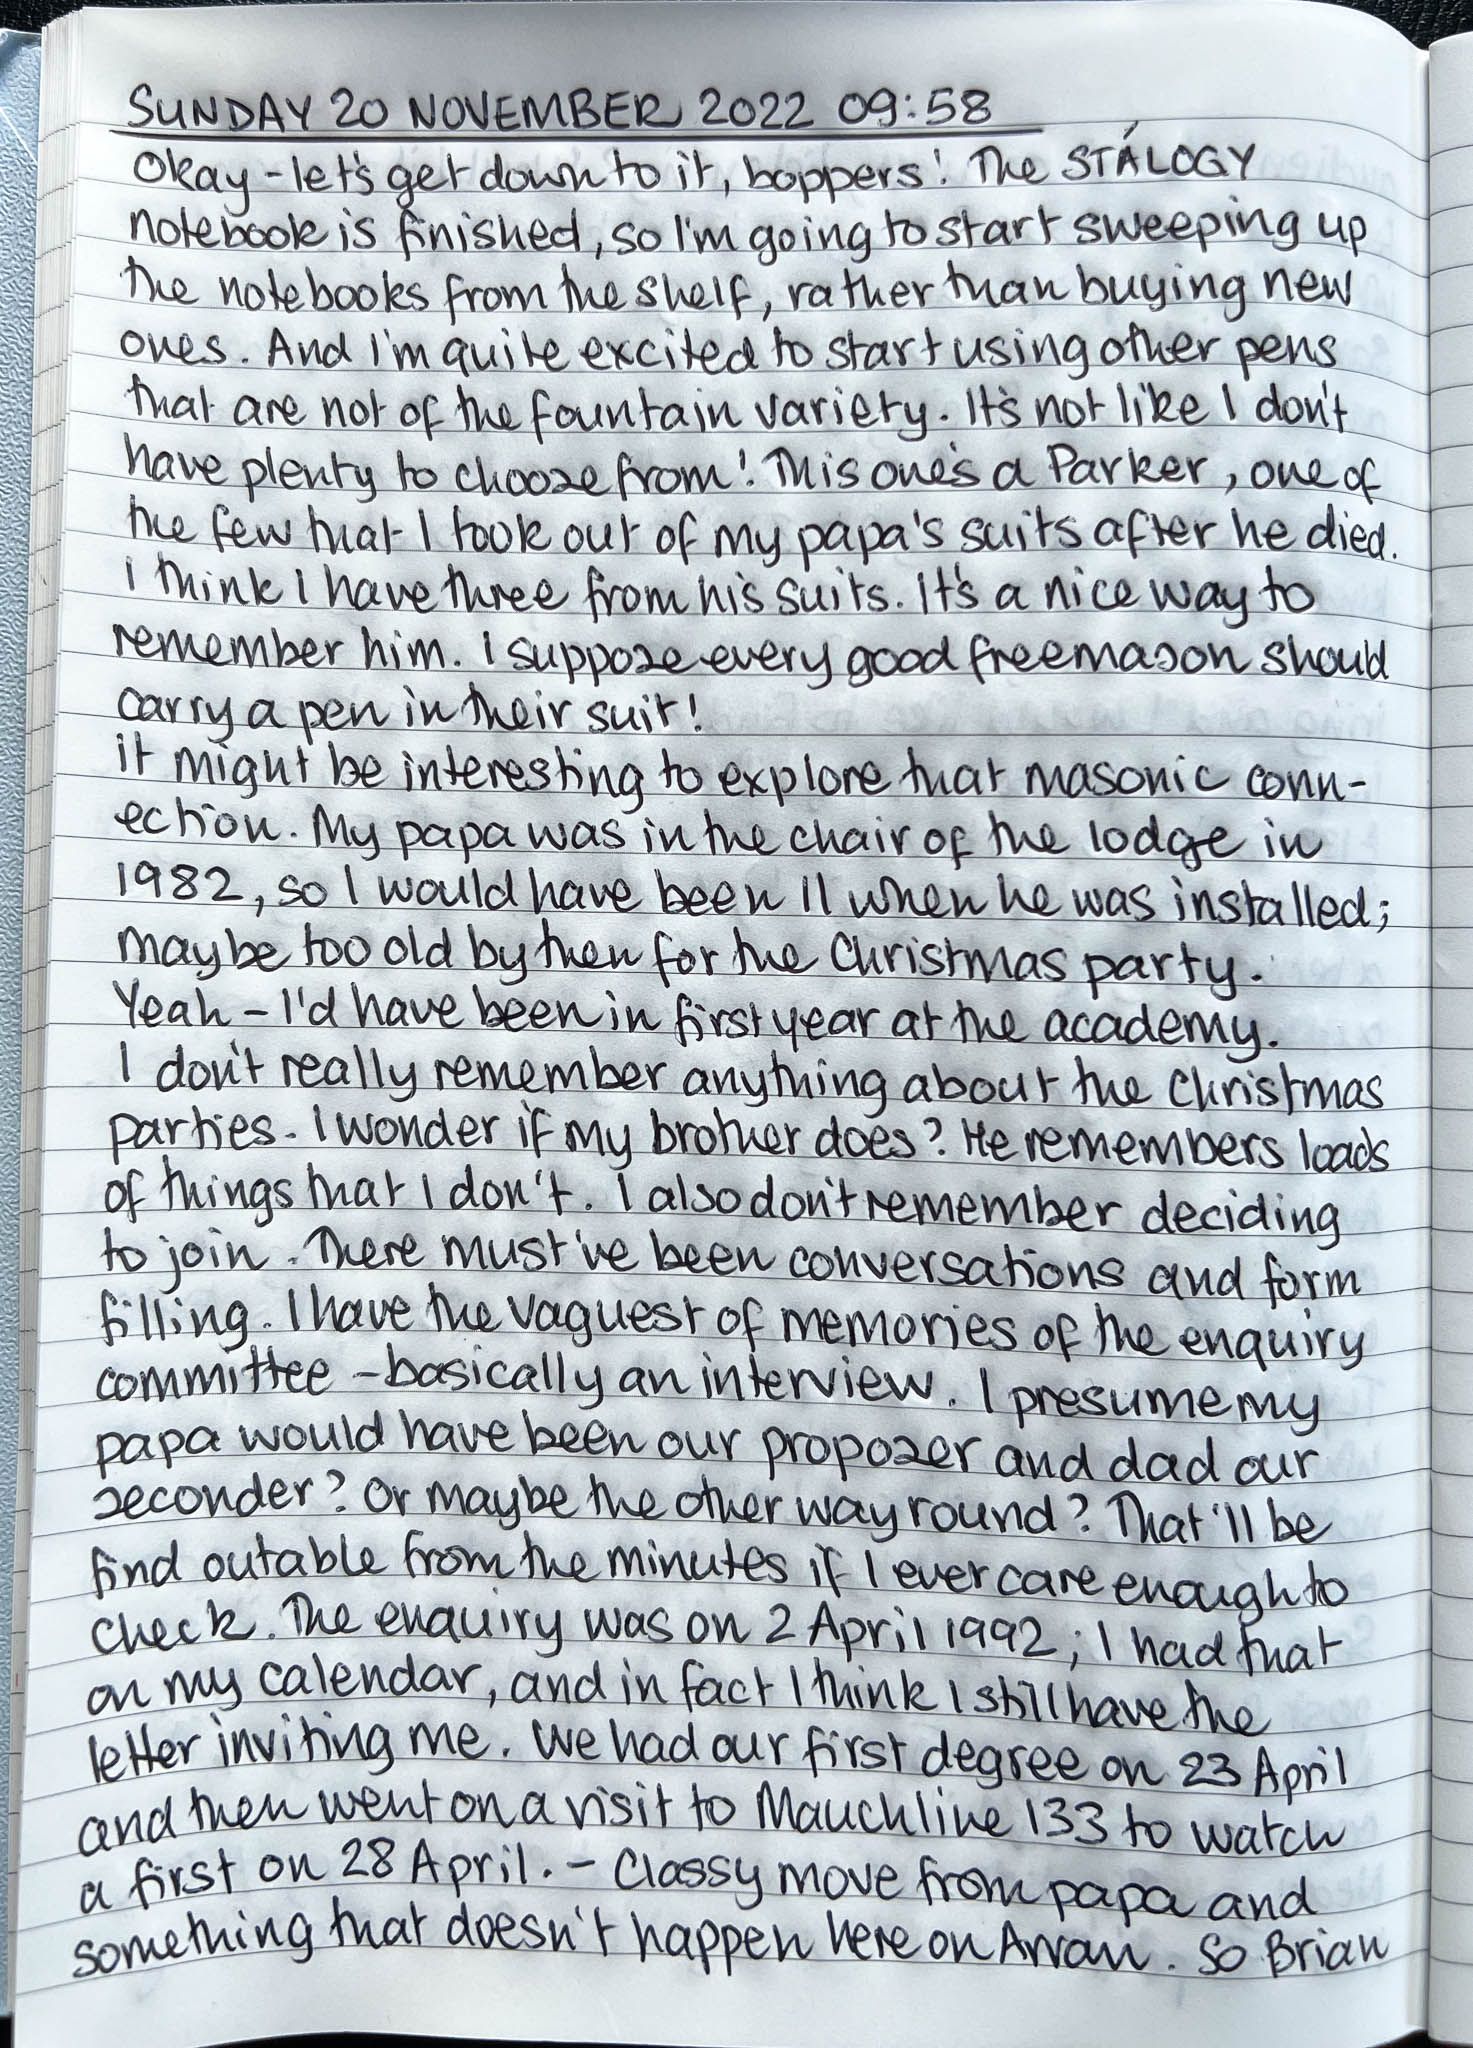 SUNDAY 20 NOVEMBER 2022 09:58
Okay - let's get down to it, boppers! The STÁLOGY
notebook is finished, so I'm going to start sweeping up
the notebooks from the shelf, rather than buying new
ones. And I'm quite excited to start using other pens
that are not of the fountain variety. It's not like I don't
have plenty to choose from! This one's a Parker, one of
the few that I took out of my papa's suits after he died.
I think I have three from his suits. It's a nice way to
remember him. I suppose every good freemason should
carry a pen in their suit!
It might be interesting to explore that masonic conn-
ection. My papa was in the chair of the lodge in
1982, so I would have been 11 when he was installed;
maybe too old by then for the Christmas party.
Yeah - I'd have been in first year at the academy.
I don't really remember anything about the Christmas
parties. I wonder if my brother does? He remembers loads
of things that I don't. I also don't remember deciding
to join. There must've been conversations and form
filling. I have the vaguest of memories of the enquiry
committee - basically an interview. I presume my
papa would have been our proposer and dad our
seconder? Or maybe the other way round? That'll be
find outable from the minutes if I ever care enough to
check. The enquiry was on 2 April 1992; I had that
on my calendar, and in fact I think I still have the
letter inviting me. We had our first degree on 23 April
and then went on a visit to Mauchline 133 to watch
a first on 28 April. - Classy move from papa and
something that doesn't happen here on Arran. So Brian